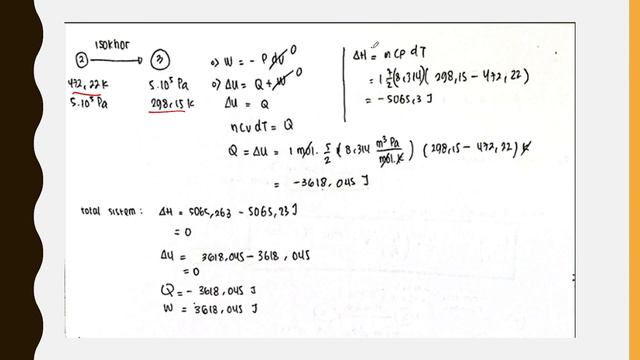 isokhor
② → ③
472,22 K 5.10⁵ Pa
5.10⁵ Pa 298,15 K
o) W = - P dV 0
o) ΔU = Q + W 0
ΔU = Q
ncv dT = Q
Q = ΔU = 1 mol. 5/2 (8,314 m³ Pa / mol.K) (298,15 - 472,22) K
= -3618,045 J
ΔH = n CP dT
= 1 7/2 (8,314) (298,15 - 472,22)
= -5065,3 J
total sistem : ΔH = 5065,263 - 5065,23 J
= 0
ΔU = 3618,045 - 3618,045
= 0
Q = - 3618,045 J
W = 3618,045 J